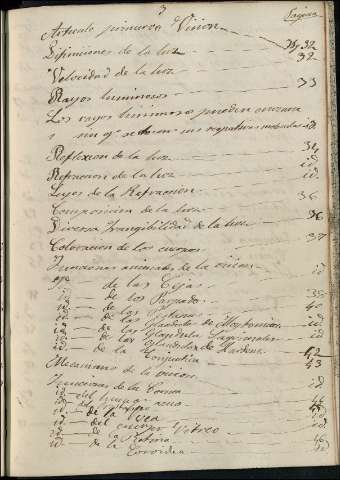 3
Página
Articulo primero Vision 31, 32
Difiniciones de la luz 32
Velocidad de la luz
Rayos luminosos 33
Los rayos luminosos pueden
sin qe se sus respectivas moleculas id.
Reflexion de la luz 34
Refraccion de la luz id.
Leyes de la Refraccion id.
Composicion de la luz 36
Diversa frangibilidad de la luz 36
Coloracion de los cuerpos 37
Funciones animales de la vision id
de las Cejas
id de los Parpados 39
id de las 40
id de las Glandulas de id
id de las Glandulas Lagrimales id
id de las Glandulas de id
id de la Conjuntiva 42
Mecanismo de la vision 43
Funciones de la Cornea id
id del humor id
id
id de la
id del cuerpo Vitreo id
id de la Retina 46
id de la Coroidea id